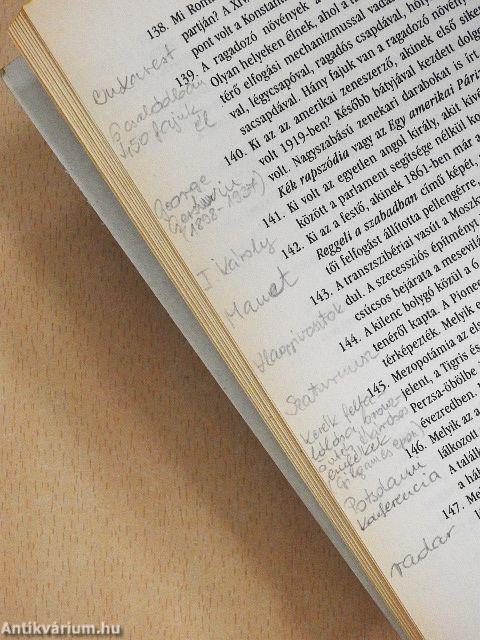 138. Mi Rom
partján? A XIV
pont volt a Konstantin
139. A ragadozó növények a
Olyan helyeken élnek, ahol a
térő elfogási mechanizmussal vadá
val, légycsapóval, ragadós csapdával, hóly
sacsapdával. Hány fajuk van a ragadozó növény
140. Ki az az amerikai zeneszerző, akinek első sike
volt 1919-ben? Később bátyjával kezdett dolgo
volt. Nagyszabású zenekari darabokat is írt
Kék rapszódia vagy az Egy amerikai Páriz
141. Ki volt az egyetlen angol király, akit kivé
között a parlament segítsége nélkül ko
142. Ki az a festő, akinek 1861-ben már a
Reggeli a szabadban című képét,
tői felfogást állította pellengérre,
143. A transzszibériai vasút a Moszk
dul. A szecessziós építményi
csúcsos bejárata a mesevilá
144. A kilenc bolygó közül a 6
tenéről kapta. A Pionee
térképezték. Melyik e
145. Mezopotámia az els
jelent, a Tigris és
Perzsa-öbölbe
évezredben. M
146. Melyik az a
lálkozott
A talál
a há
147. Me
Bukarest
450 fajuk
él
George
Gershwin
(1898-1937)
I Károly
Manet
Vlagyivosztok
Szaturnusz
kerék
Potsdami
konferencia
radar
Antikvárium.hu